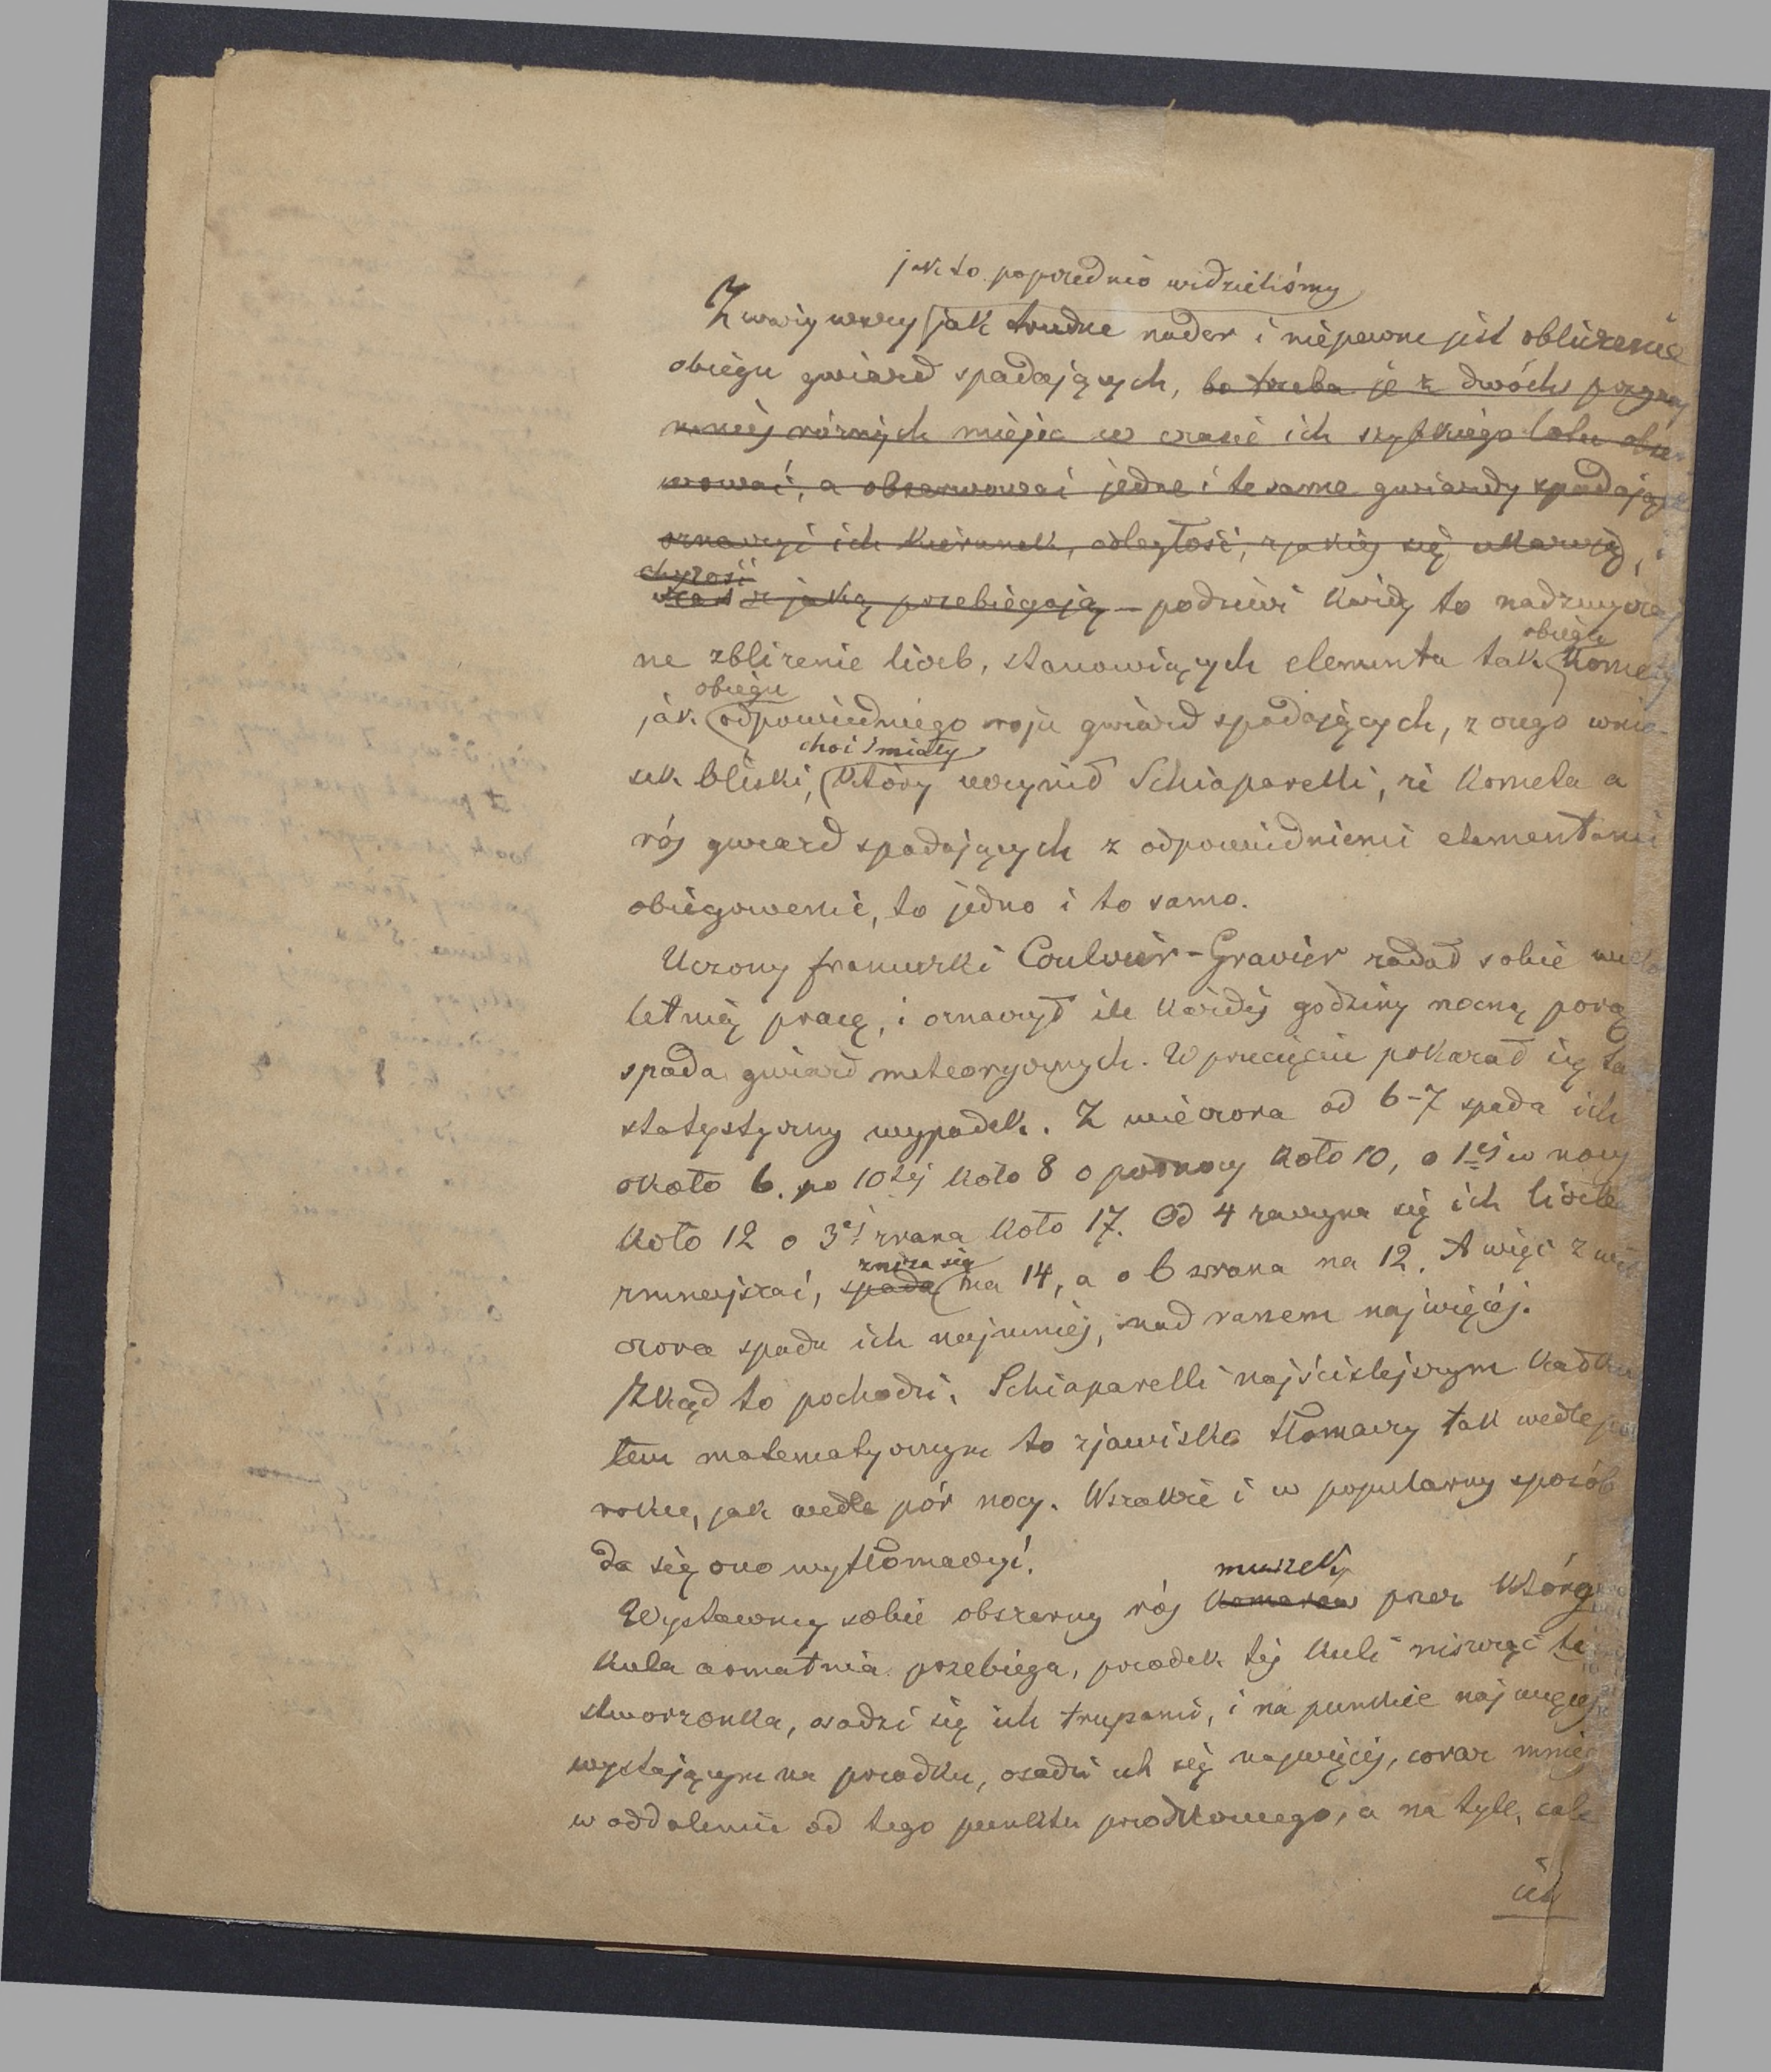 jak to poprzednio widzieliśmy
Zważywszy jak trudne nader i niepewne jest obliczenie
obiegu gwiazd spadających, bo trzeba je z dwóch przynaj
mniej różnych miejsc w czasie ich szybkiego lotu obser
wować, a obserwować jedne i te same gwiazdy spadające
oznaczyć ich kierunek, odległość, z jakiej się ukazują,
chyżość
czas z jaką przebiegają — podziwi każdy to nadzwyczaj
obiegu
ne zbliżenie liczb, stanowiących elementa tak komety
obiegu
jak odpowiedniego roju gwiazd spadających, z czego wnio-
choć śmiały
sek bliski, który uczynił Schiaparelli, że kometa a
rój gwiazd spadających z odpowiedniemi elementami
obiegowemi, to jedno i to samo.
Uczony francuzki Coulvier-Gravier zadał sobie wielo
letnią pracę, i oznaczył ile każdej godziny nocną porą
spada gwiazd meteorycznych. W przecięciu pokazał się ta
statystyczny wypadek. Z wieczora od 6-7 spada ich
około 6. po 10tej koło 8 o północy koło 10, o 1ej w nocy
koło 12 o 3ej zrana koło 17. Od 4 zaczyna się ich liczba
zniża się
zmniejszać, spada na 14, a o 6 zrana na 12. A więc z wie
czora spada ich najmniej, nad ranem najwięcej.
Zkąd to pochodzi, Schiaparelli najściślejszym kaŧku
tem matematycznym to zjawisko tłomaczy tak wedle pór
roku, jak wedle pór nocy. Wszakże i w popularny sposób
da się ono wytłomaczyć.
muszek
Wystawmy sobie obszerny rój komarów przez który
kula armatnia przebiega, przodek tej kuli niszcząc te
stworzonka, osadzi się ich trupami, i na punkcie najwięcej
wystającym na przodku, osadzi ich się najwięcej, coraz mniej
w oddaleniu od tego punktu przodkowego, a na tyle, cale
ich